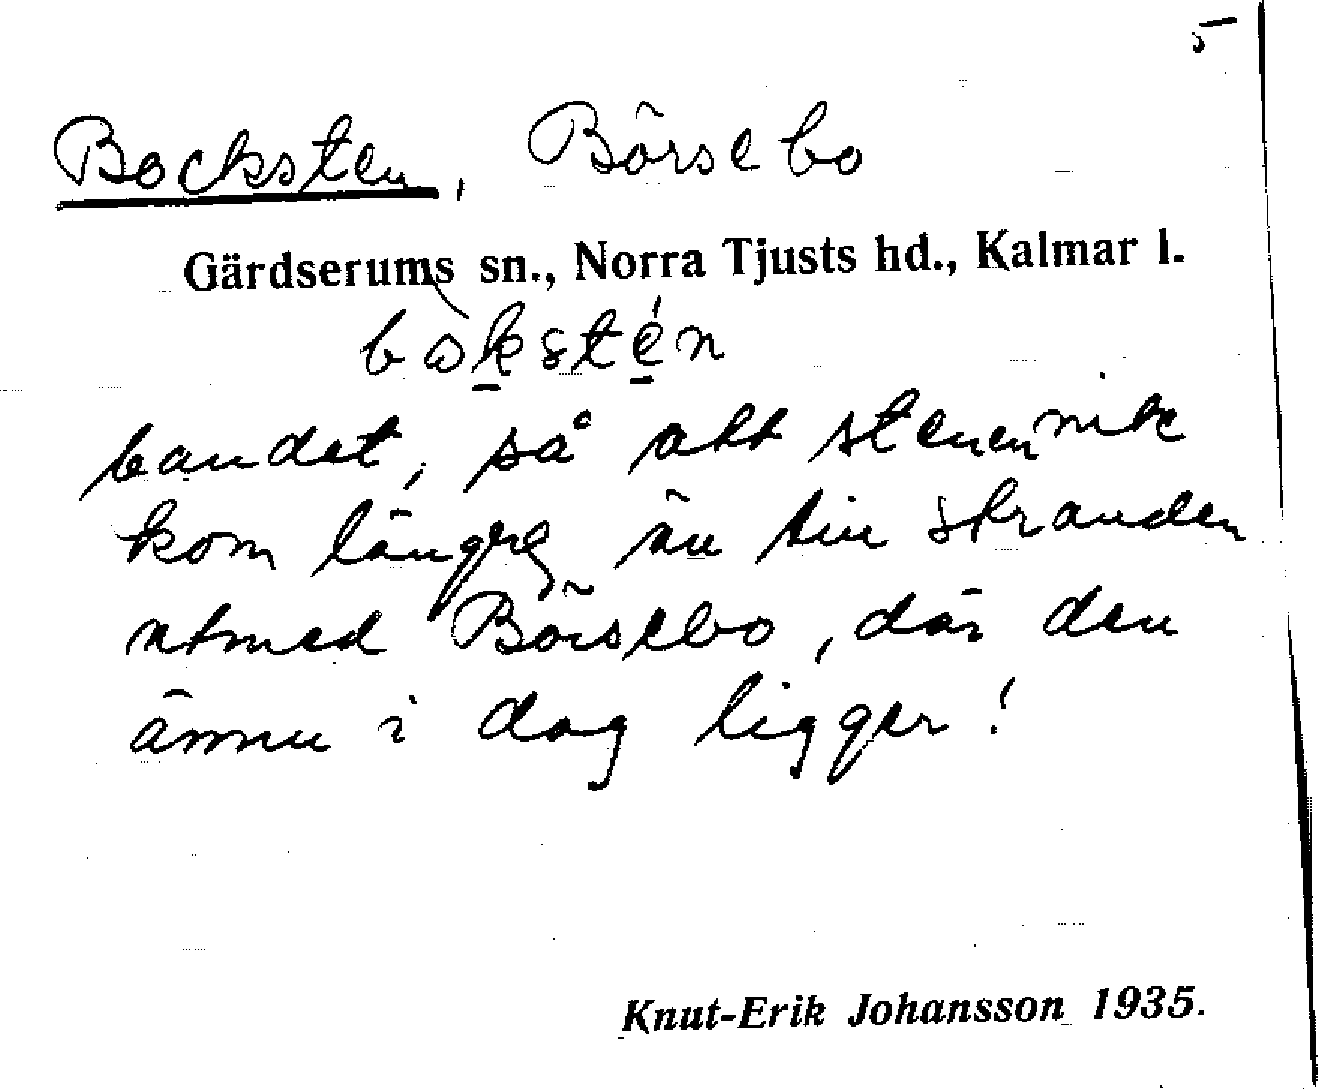 5
Bocksten, Börsebo
Gärdserums sn., Norra Tjusts hd., Kalmar l.
bandet, så att stenen
kom längre än till stranden
utmed Börsebo, där den
ännu i dag ligger!
Knut-Erik Johansson 1935.